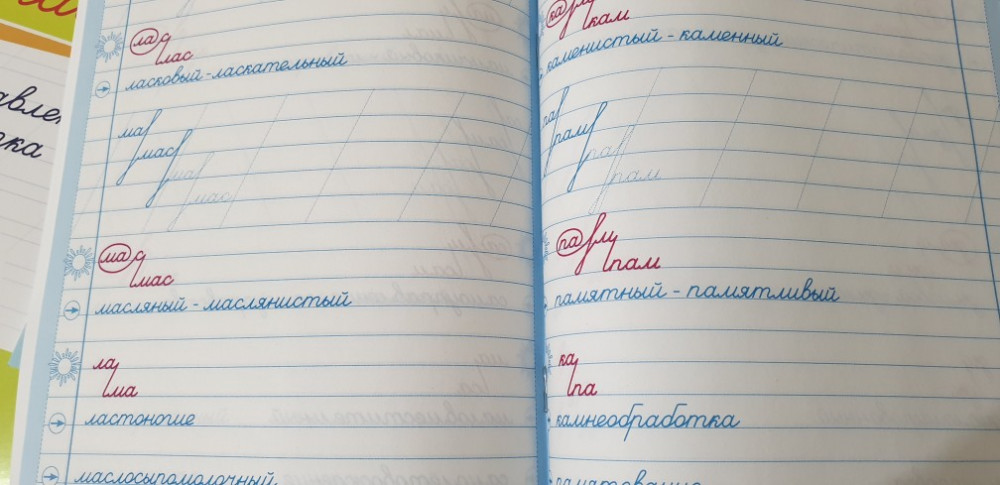 ла с
лас
ласковый - ласкательный
ма
мас
ма
мас
ма с
мас
масляный - маслянистый
ла
ма
ластоногие
маслосыромолочный.
кам
каменистый - каменный
па
пам
па
пам
па м
пам
памятный - памятливый
ка
па
камнеобработка